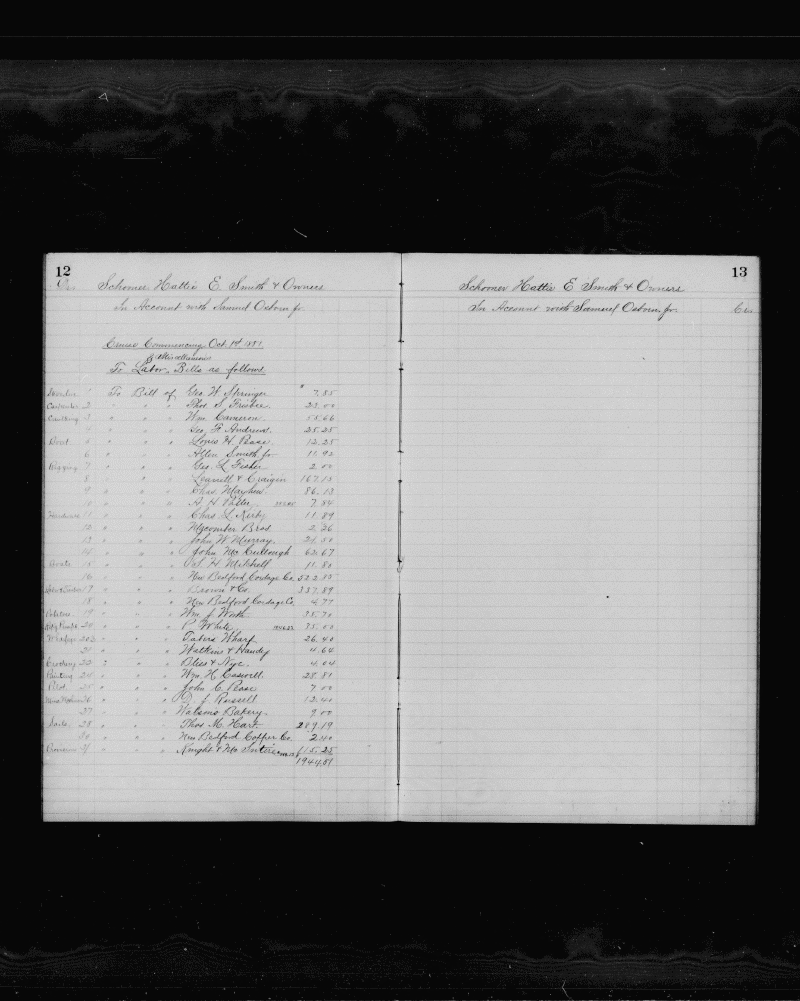 12
Schooner Hattie E Smith & Owners
In Account with Samuel Osborn jr.
Cruise Commencing Oct. 1st 1881.
& Miscellaneous
To Labor, Bills as follows
1 To Bill of Geo. W. Springer 7.85
Carpenter 2 " " " Thos S. 23.00
Caulking 3 " " " Wm Cameron 55.66
4 " " " Geo. F. Andrews 25.25
5 " " " Louis H. Pease 12.25
6 " " " Allen Smith jr 11.92
Rigging 7 " " " Geo. L. Fisher 2.00
8 " " " & Craigin 167.13
9 " " " Chas Mayhew 86.13
10 " " " A. H. Potter 7.84
Hardware 11 " " " Chas L. Kirby 11.89
12 " " " Macomber Bros 2.26
13 " " " John W. Murray 21.00
14 " " " John McCullough 62.67
Boats 15 " " " H. Mitchell 11.80
16 " " " New Bedford Cordage Co. 522.85
17 " " " Brown & Co. 337.89
18 " " " New Bedford Cordage Co. 4.77
19 " " " Wm J. Worth 35.70
20 " " " P. White 35.00
Wharfage " " " Tabers Wharf 26.40
21 " " " Watkins & Handy 4.64
Crockery 22 " " " Bliss & Nye 4.04
Painting 24 " " " Wm. H. Caswell 28.81
Pilot 25 " " " John C. Pease 7.00
26 " " " J. Russell 12.40
27 " " " Watsons Bakery 9.00
Sails 28 " " " Thos M. Hart 289.19
30 " " " New Bedford Copper Co. 2.40
" " " Knight & McIntire 115.25
1944.51
13
Schooner Hattie E Smith & Owners
In Account with Samuel Osborn jr.
Cr.